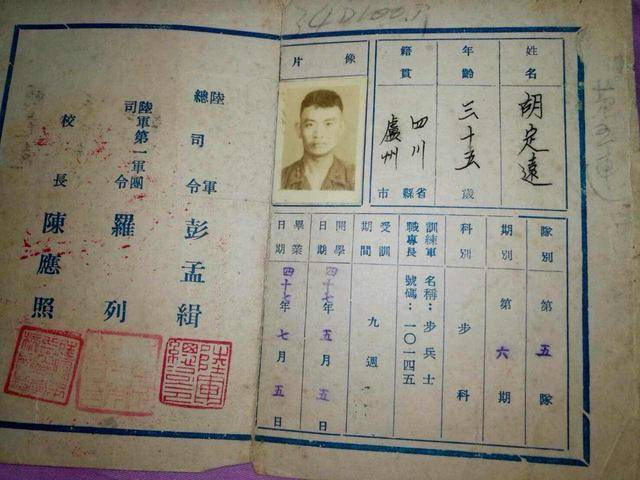 姓名 胡定遠
年齡 三十五歲
籍貫 四川 盧州 省縣市
像片
隊別 第五隊
期別 第六期
科別 步科
訓練軍職專長 名稱：步兵士
號碼：一〇一四五
受訓期間 九週
開學日期 四十七年五月五日
畢業日期 四十七年七月五日
陸軍總司令 彭孟緝
陸軍第一軍團司令 羅列
校長 陳應照